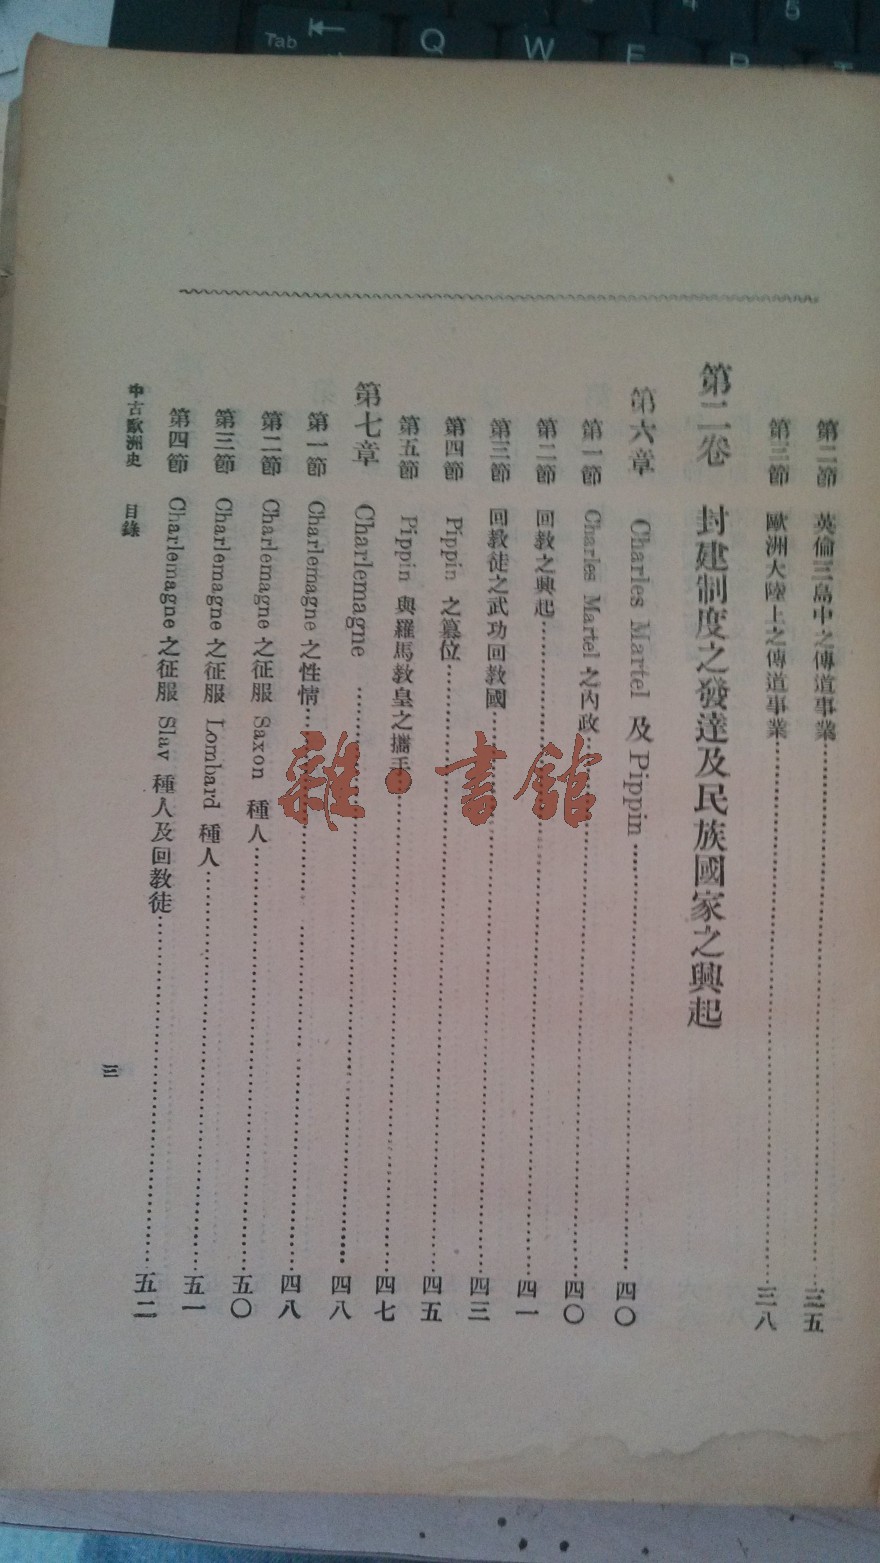 第二節 英倫三島中之傳道事業……三五
第三節 歐洲大陸上之傳道事業……三八
第二卷 封建制度之發達及民族國家之興起
第六章 Charles Martel 及 Pippin……四〇
第一節 Charles Martel 之內政……四〇
第二節 回教之興起……四一
第三節 回教徒之武功回教國……四三
第四節 Pippin 之篡位……四五
第五節 Pippin 與羅馬教皇之攜手……四七
第七章 Charlemagne……四八
第一節 Charlemagne 之性情……四八
第二節 Charlemagne 之征服 Saxon 種人……五〇
第三節 Charlemagne 之征服 Lombard 種人……五一
第四節 Charlemagne 之征服 Slav 種人及回教徒……五二
中古歐洲史 目錄
三
雜·書館
Tab
Q
W
E
R
T
4
5